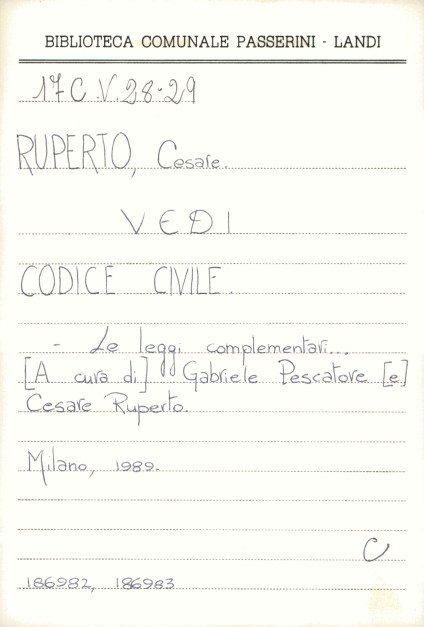 BIBLIOTECA COMUNALE PASSERINI - LANDI
17 C.V.28-29
RUPERTO, Cesare.
VEDI
CODICE CIVILE.
- Le leggi complementari...
[A cura di] Gabriele Pescatore [e]
Cesare Ruperto.
Milano, 1989.
C
186982, 186983